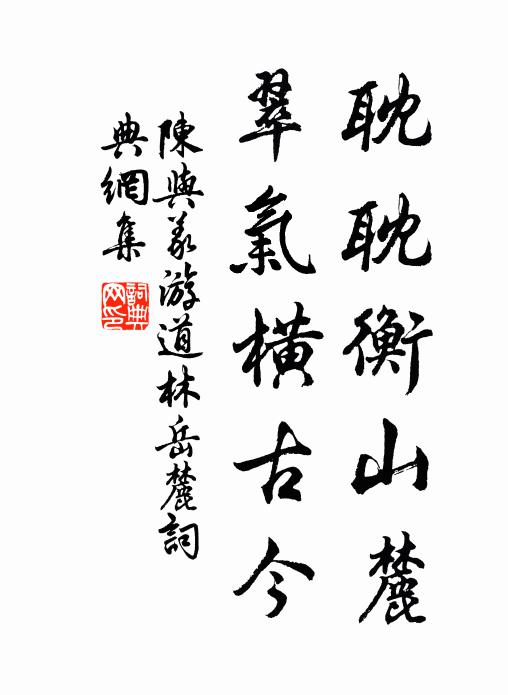 耽耽衡山麓
翠氣橫古今
陳與義游道林岳麓詞
典網集
詞典網印